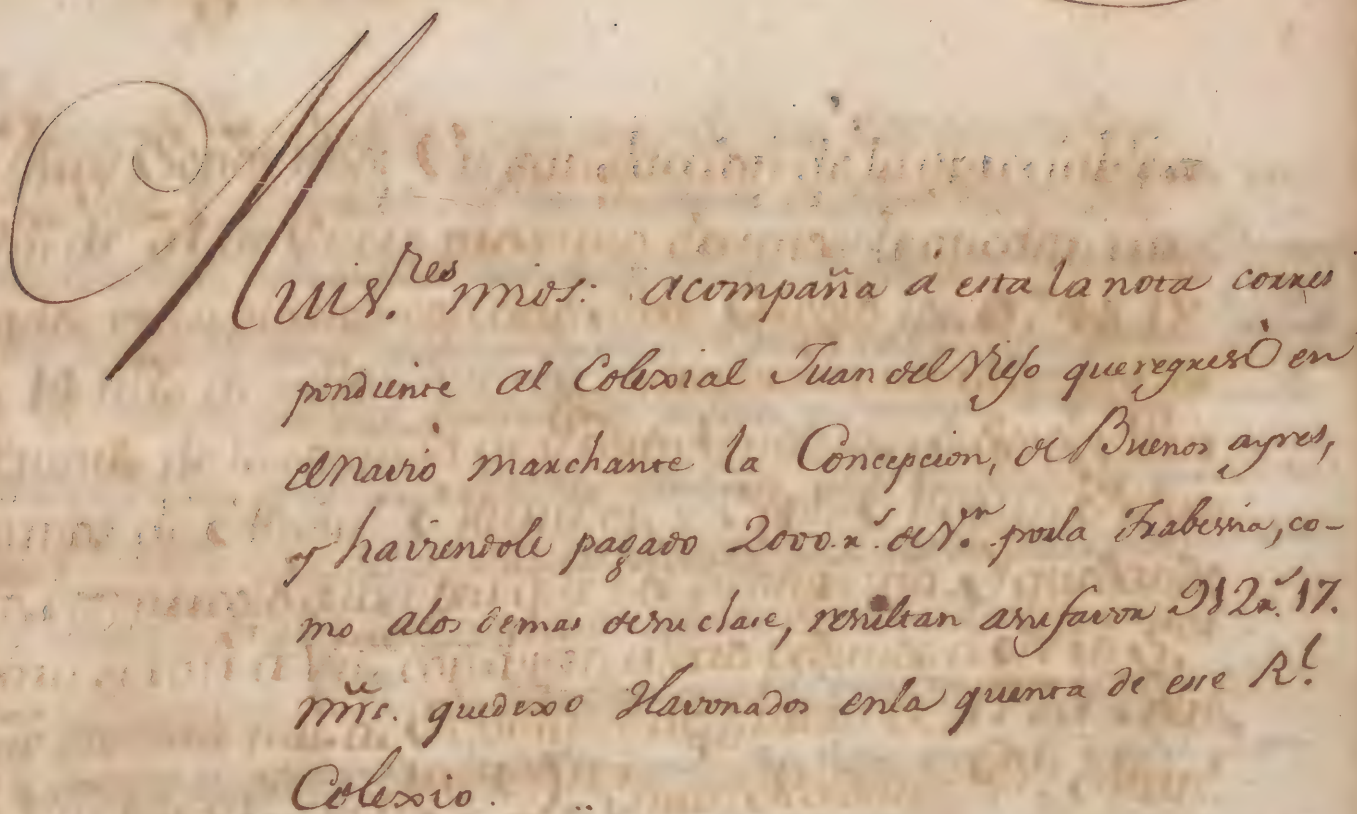 Muis.res mios: acompaña a esta la nota corres
pondiente al Colexial Juan del Viejo que regresó en
el Navio marchante la Concepcion, de Buenos ayres,
y haviendole pagado 2000 rs. de Vn. por la Trabesia, co-
mo a los demas de su clase, resultan a su favor 912 rs. 17.
mrs. que dexo Havonados en la quenta de ese Rl.
Colexio.